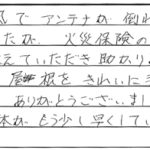 風で アンテナが 倒れ
たが、火災保険の
えていただき 助かり
屋根を きれいに
ありがとうございまし
体が もう少し早くしてい